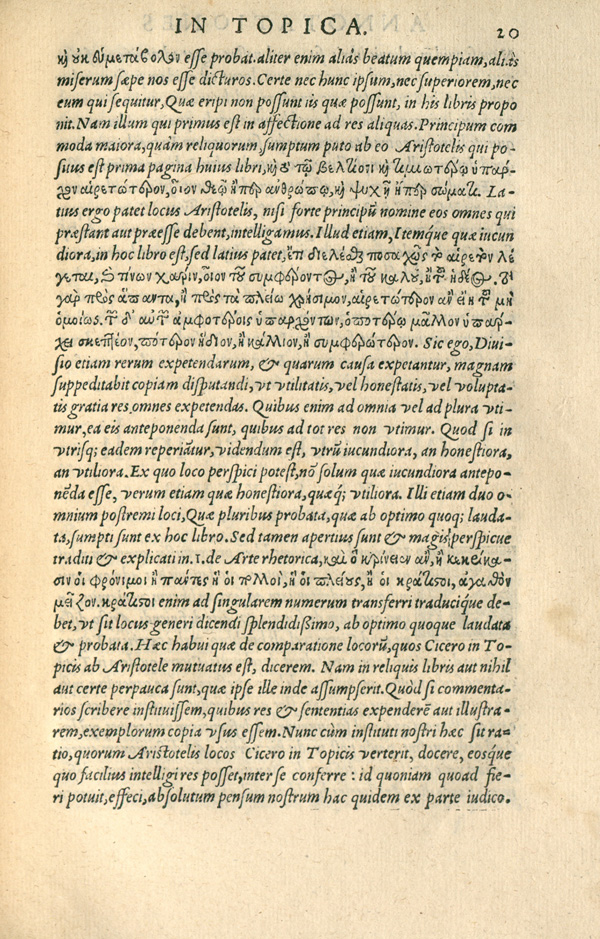 IN TOPICA. 20
καὶ οὐκ εὐμετάβολον esse probat. aliter enim aliâs beatum quempiam, aliâs
miserum sæpe nos esse dicturos. Certe nec hunc ipsum, nec superiorem, nec
eum qui sequitur, Quæ eripi non possunt iis quæ possunt, in his libris propo
nit. Nam illum qui primus est in affectione ad res aliquas. Principum com
moda maiora, quàm reliquorum, sumptum puto ab eo Aristotelis qui po-
situs est prima pagina huius libri, καὶ τῷ βελτίονι καὶ τιμιωτέρῳ ὑπάρ-
χον αἱρετώτερον, οἷον θεῷ ἢ περ ἀνθρώπῳ, καὶ ψυχῇ ἢ περ σώματι. La-
tius ergo patet locus Aristotelis, nisi forte principũ nomine eos omnes qui
præstant aut præesse debent, intelligamus. Illud etiam, Itemq́ue quæ iucun
diora, in hoc libro est, sed latius patet, ἔτι διελέσθαι ποσαχῶς τὸ αἱρετὸν λέ
γεται, καὶ τίνων χάριν, οἷον τοῦ συμφέροντος, ἢ τοῦ καλοῦ, ἢ τοῦ ἡδέος. τὸ
γὰρ πρὸς ἅπαντα, ἢ πρὸς τὰ πλείω χρήσιμον, αἱρετώτερον ἂν εἴη τοῦ μὴ
ὁμοίως. τῶν δ' αὐτῶν ἀμφοτέροις ὑπαρχόντων, ὁποτέρῳ μᾶλλον ὑπάρ-
χει σκεπτέον, πότερον ἥδιον, ἢ κάλλιον, ἢ συμφερώτερον. Sic ego, Diui-
sio etiam rerum expetendarum, & quarum causa expetantur, magnam
suppeditabit copiam disputandi, vt vtilitatis, vel honestatis, vel volupta-
tis gratia res omnes expetendas. Quibus enim ad omnia vel ad plura vti-
mur, ea eis anteponenda sunt, quibus ad tot res non vtimur. Quod si in
vtrisq; eadem reperiãtur, videndum est, vtrũ iucundiora, an honestiora,
an vtiliora. Ex quo loco perspici potest, nõ solum quæ iucundiora antepo-
nẽda esse, verum etiam quæ honestiora, quæq́; vtiliora. Illi etiam duo o-
mnium postremi loci, Quæ pluribus probata, quæ ab optimo quoq; lauda-
ta, sumpti sunt ex hoc libro. Sed tamen apertius sunt & magis perspicue
traditi & explicati in .1. de Arte rhetorica, καὶ ὃ κρίνειαν ἂν, ἢ κεκρίκα-
σιν οἱ φρόνιμοι ἢ πάντες ἢ οἱ πολλοὶ, ἢ οἱ πλείους, ἢ οἱ κράτιστοι, ἀγαθὸν
μεῖζον. κράτιστοι enim ad singularem numerum transferri traduciq́ue de-
bet, vt sit locus generi dicendi splendidißimo, ab optimo quoque laudata
& probata. Hæc habui quæ de comparatione locorũ, quos Cicero in To-
picis ab Aristotele mutuatus est, dicerem. Nam in reliquis libris aut nihil
aut certe perpauca sunt, quæ ipse ille inde assumpserit. Quòd si commenta-
rios scribere instituissem, quibus res & sententias expenderẽ aut illustra-
rem, exemplorum copia vsus essem. Nunc cùm instituti nostri hæc sit ra-
tio, quorum Aristotelis locos Cicero in Topicis verterit, docere, eosque
quo facilius intelligi res posset, inter se conferre : id quoniam quoad fie-
ri potuit, effeci, absolutum pensum nostrum hac quidem ex parte iudico.